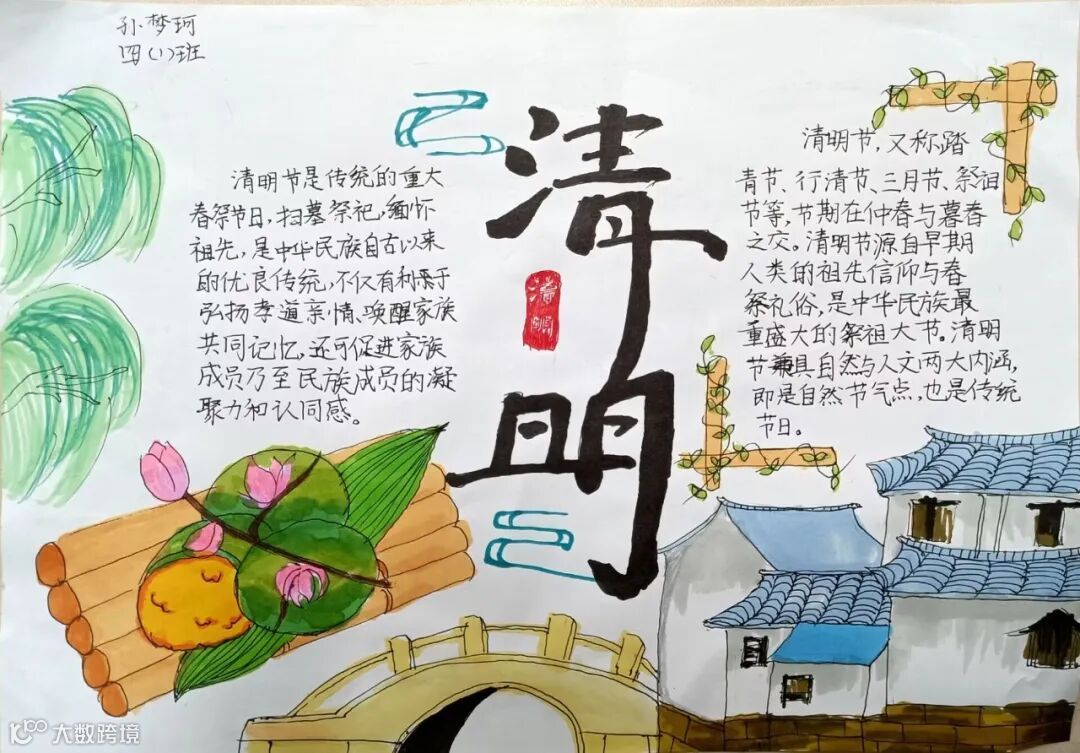 孙梦珂
四(1)班
清明
清明
清明节是传统的重大
春祭节日，扫墓祭祀，缅怀
祖先，是中华民族自古以来
的优良传统，不仅有利于
弘扬孝道亲情、唤醒家族
共同记忆，还可促进家族
成员乃至民族成员的凝
聚力和认同感。
清明节，又称踏
青节、行清节、三月节、祭祖
节等，节期在仲春与暮春
之交。清明节源自早期
人类的祖先信仰与春
祭礼俗，是中华民族最
重盛大的祭祖大节。清明
节兼具自然与人文两大内涵，
即是自然节气点，也是传统
节日。
大数跨境